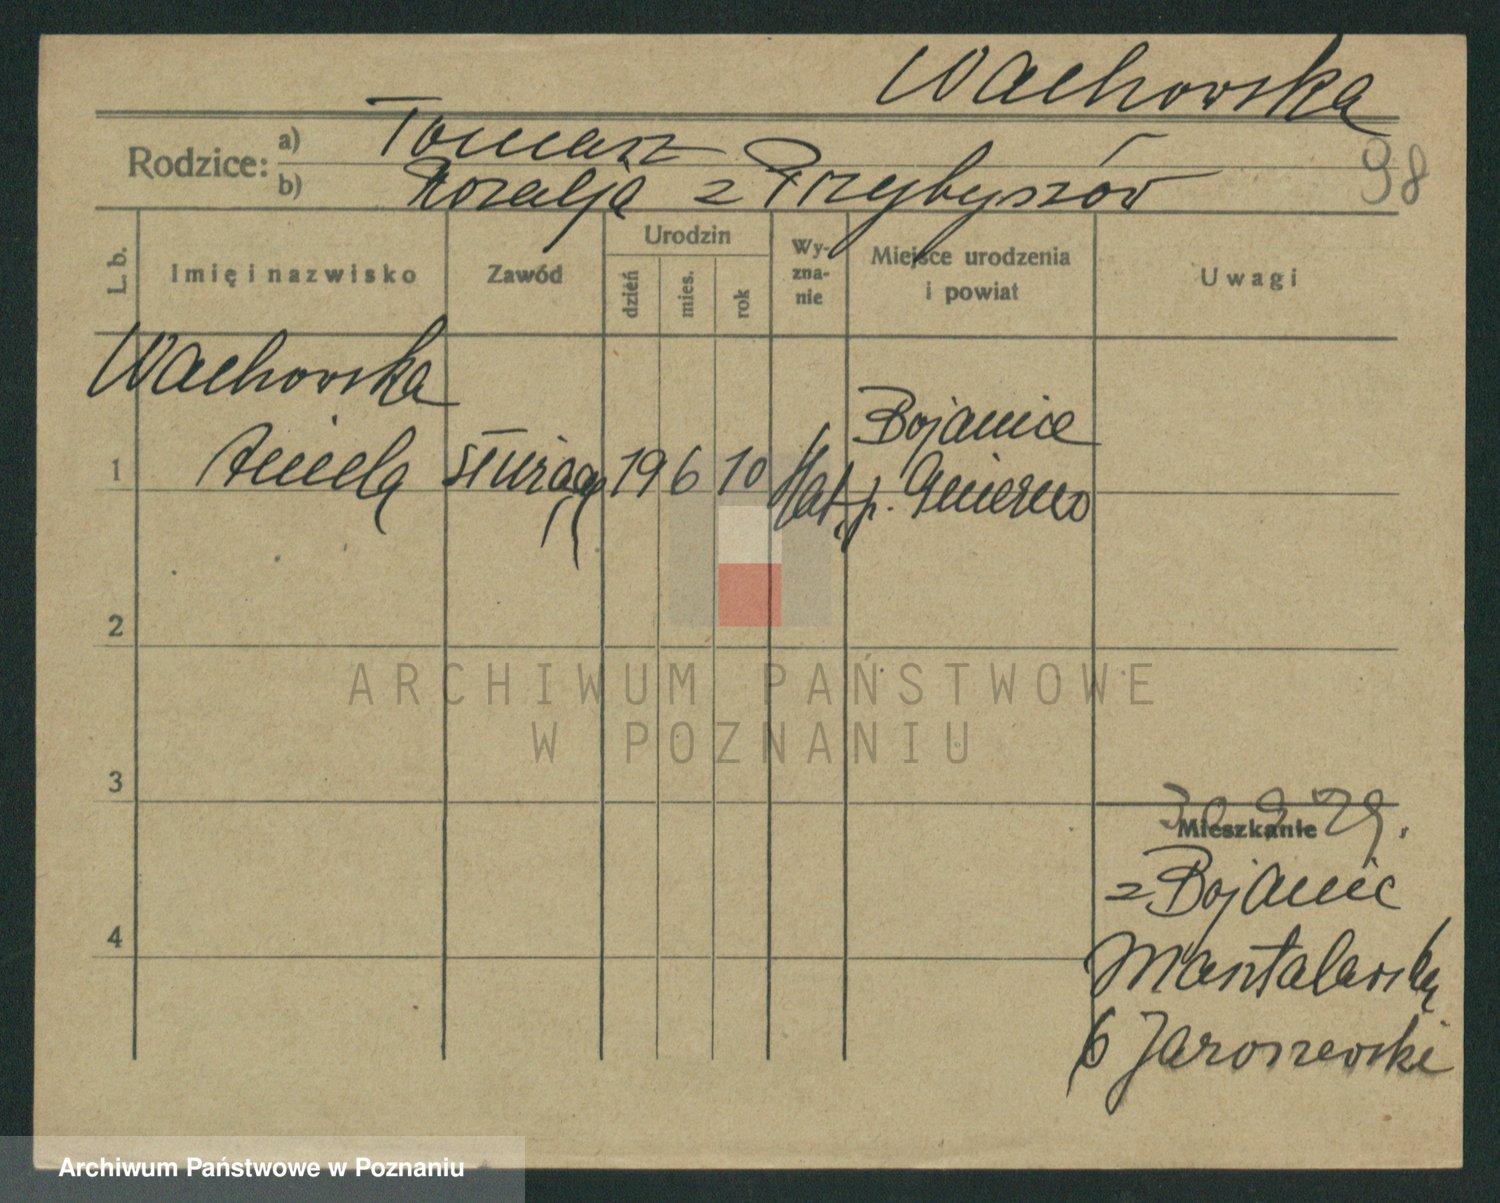 Wachowska
Rodzice: a) Tomasz
b) Rozalja z Przybyszów
98
L. b.
Imię i nazwisko
Zawód
Urodzin
dzień
mies.
rok
Wy-
zna-
nie
Miejsce urodzenia
i powiat
Uwagi
Wachowska
1 Aniela służąca 19 6 10 kat. Bojanice
p. Gniezno
2
3
4
ARCHIWUM PAŃSTWOWE
W POZNANIU
30 9 29.
Mieszkanie
z Bojanic
Masztalarska
6 Jaroszewski
Archiwum Państwowe w Poznaniu